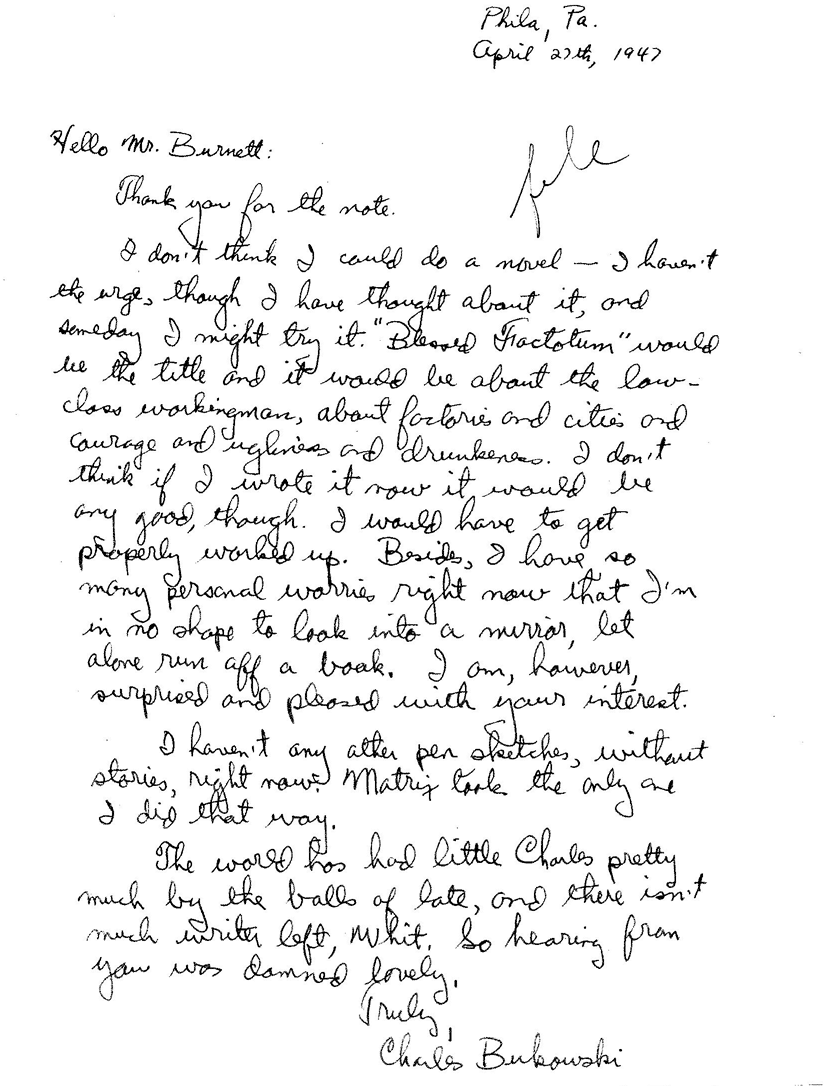 Phila, Pa.
April 27th, 1947
Hello Mr. Burnett:
file
Thank you for the note.
I don't think I could do a novel — I haven't
the urge, though I have thought about it, and
someday I might try it. "Blessed Factotum" would
be the title and it would be about the low-
class workingman, about factories and cities and
courage and ugliness and drunkeness. I don't
think if I wrote it now it would be
any good, though. I would have to get
properly worked up. Besides, I have so
many personal worries right now that I'm
in no shape to look into a mirror, let
alone run off a book. I am, however,
surprised and pleased with your interest.
I haven't any other pen sketches, without
stories, right now. Matrix took the only one
I did that way.
The world has had little Charles pretty
much by the balls of late, and there isn't
much writer left, Whit. So hearing from
you was damned lovely.
Truly,
Charles Bukowski